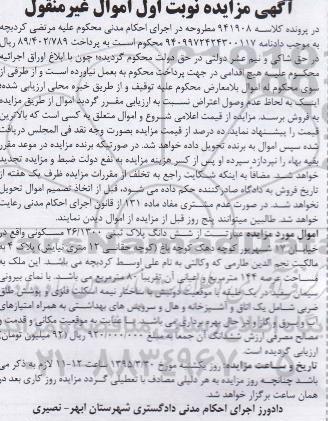 آگهی مزایده نوبت اول اموال غیرمنقول
در پرونده کلاسه ۹۴۱۹۰۸ مطروحه در اجرای احکام مدنی محکوم علیه مرتضی کردبچه
به موجب دادنامه ۹۴۰۹۹۷۲۴۲۴۳۰۰۱۱۷ محکوم است به پرداخت ۸۹/۴۰۲/۷۸۹ ریال
در حق شاکی و نیم عشر دولتی در حق دولت محکوم گردیده؛ چون با ابلاغ اوراق اجرائیه
محکوم علیه هیچ اقدامی در جهت پرداخت محکوم به بعمل نیاورده است و از طرفی از
سوی محکوم له اموال بلامعارض محکوم علیه توقیف و از طریق خبره محلی ارزیابی شده
اینک به لحاظ عدم وصول اعتراض نسبت به ارزیابی مقرر گردید اموال از طریق مزایده
به فروش برسد. مزایده از قیمت اعلامی شروع و اموال متعلق به کسی است که بالاترین
قیمت را پیشنهاد نماید. ده درصد از قیمت مزایده بصورت وجه نقد فی المجلس دریافت
شده سپس اموال به برنده تحویل داده خواهد شد. در صورتیکه برنده مزایده در موعد مقرر
بقیه بهاء را نپردازد سپرده او پس از کسر هزینه مزایده به نفع دولت ضبط و مزایده تجدید
خواهد شد. مضافا به اینکه شکایت راجع به تخلف از مقررات مزایده ظرف یک هفته از
تاریخ فروش به دادگاه صادرکننده حکم داده می شود، قبل از اتخاذ تصمیم اموال تحویل
نخواهد شد. در صورت عدم مشتری مفاد ماده ۱۳۱ از قانون اجرای احکام مدنی رعایت
خواهد شد. طالبین میتوانند پنج روز قبل از مزایده از اموال دیدن نمایند.
اموال مورد مزایده عبارتست از شش دانگ پلاک ثبتی ۲۶/۱۳۰۰ مسکونی واقع در
خیابان ... کوچه دهک کوچه باغ (کوچه حقانی ۱۲ متری نیایش) پلاک ۴ به
مالکیت نجم الدین طارمی که وکالتی به نام علی اوسط کردبچه می باشد. این ملک به
مساحت عرصه ۱۴۴ مترمربع و اعیانی آن تقریبا ۸۰ مترمربع می باشد. با نمای بیرونی
سیمان سفید در یک طبقه با موقعیت دونبش به ساختار نیمه اسکلت فلزی و پوشش طاق
ضربی شامل یک اتاق و آشپزخانه و هال و سرویس های بهداشتی به همراه امتیازهای
آب و برق و گاز در حال بهره برداری می باشد. با عنایت به موقعیت مکانی و قدمت و
مصالح مصرفی ارزش ششدانگ آن جمعا به مبلغ ۹۲۰/۰۰۰/۰۰۰ ریال (۹۲ میلیون تومان)
ارزیابی گردیده است.
تاریخ و ساعت مزایده: روز یکشنبه مورخ ۱۳۹۵/۳/۳۰ ساعت ۱۲-۱۱ لازم به ذکر می
باشد چنانچه روز مزایده به هر دلیلی مصادف با تعطیلی گردد مزایده روز کاری بعد در
همان ساعت برگزار خواهد شد.
دادورز اجرای احکام مدنی دادگستری شهرستان ابهر- نصیری